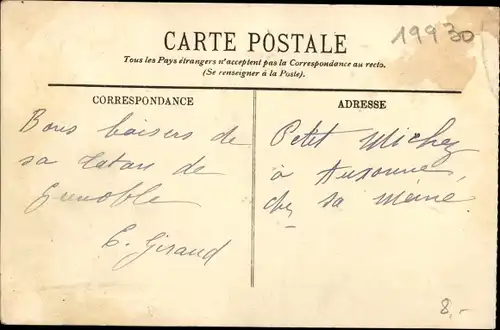 CARTE POSTALE
19930
Tous les Pays étrangers n'acceptent pas la Correspondance au recto.
(Se renseigner à la Poste).
CORRESPONDANCE
Bons baisers de
sa tatan de
Grenoble
E. Giraud
ADRESSE
Petit
à Auxonne,
chez sa
8.-